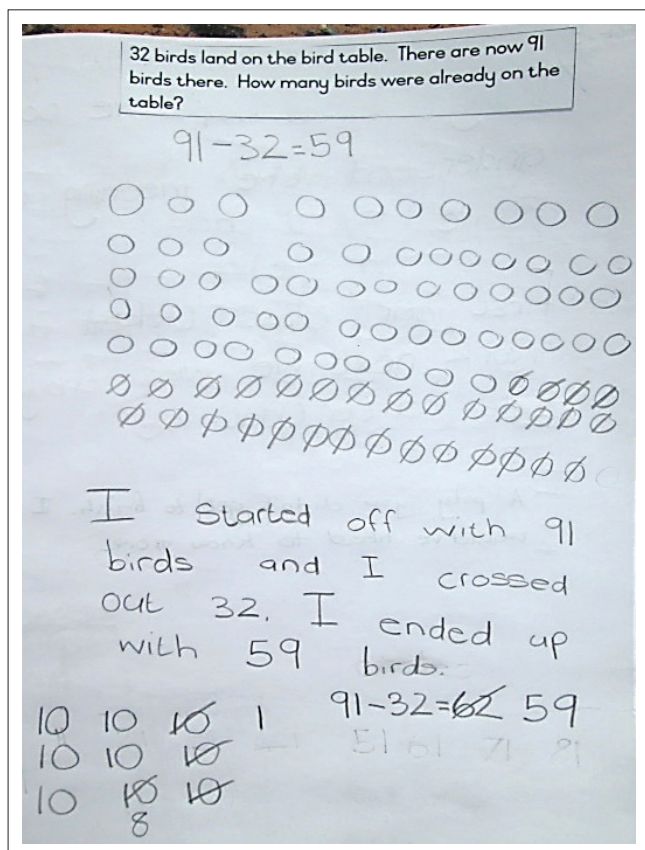 32 birds land on the bird table. There are now 91
birds there. How many birds were already on the
table?
91-32=59
I started off with 91
birds and I crossed
out 32. I ended up
with 59 birds.
10 10 10 1 91-32=62 59
10 10 10
10 10 10
8